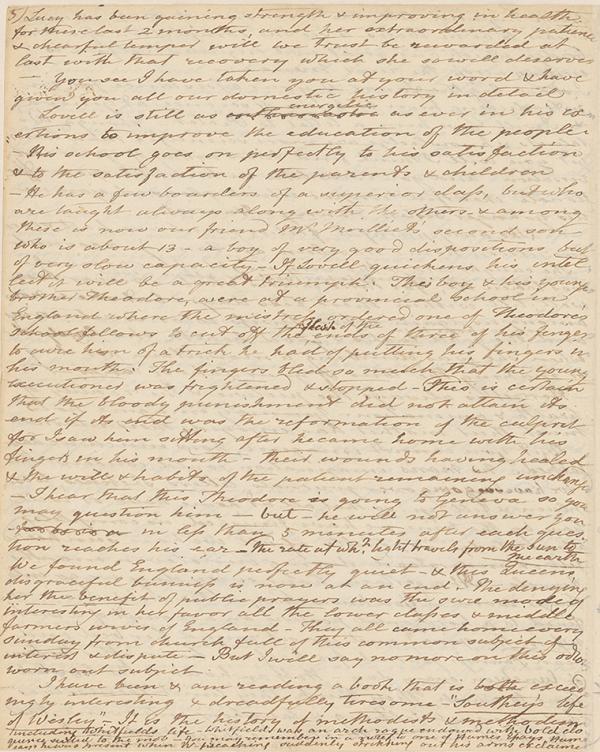 5) Lucy has been gaining strength & improving in health
for these last 2 months, and her extraordinary patience
& chearful temper will we trust be rewarded at
last with that recovery which she so well deserves
– You see I have taken you at your word & have
given you all our domestic history in detail
energetic
Lovell is still as as ever in his ex
ertions to improve the education of the people
– His school goes on perfectly to his satisfaction
& to the satisfaction of the parents & children
– He has a few boarders of a superior class, but who
are taught always along with the others & among
these is now our friend Mr. second son
who is about 13 – a boy of very good dispositions but
of very slow capacity – If Lovell quickens his intel
lect it will be a great triumph. This boy & his young
brother Theodore, were at a provincial school in
England where the mistress ordered one of Theodore's
flesh of the
school fellows to cut off the ends of three of his fingers
to cure him of a trick he had of putting his fingers in
his mouth. The fingers bled so much that the young
executioner was frightened & stopped – This is certain
that the bloody punishment did not attain its
end if its end was the reformation of the culprit
for I saw him sitting after he came home with his
fingers in his mouth – their wounds having healed
& the will & habits of the patient remaining unchanged
– I hear that this Theodore is going to Geneva so you
may question him – but – he will not answer you
in less than 5 minutes after each ques
tion reaches his ear – the rate at wh^h light travels from the sun to
the earth
We found England perfectly quiet – & this Queens
disgraceful business is now at an end – The denying
her the benefit of public prayers was the sure mode of
interesting in her favor all the lower classes & middle
farmers wives of England – They all came home every
sunday from church full of this common subject of
interest & dispute – But I will say no more on this odious
worn out subject
I have been & am reading a book that is both exceed
ingly interesting & dreadfully tiresome – Southey's life
of Wesley – It is the history of methodists & methodism
including Whitfields life – Whitfield was an arch rogue endowed with bold elo
quence suited to the mob – You remember
was present when W preaching suddenly out his arms exclaimed